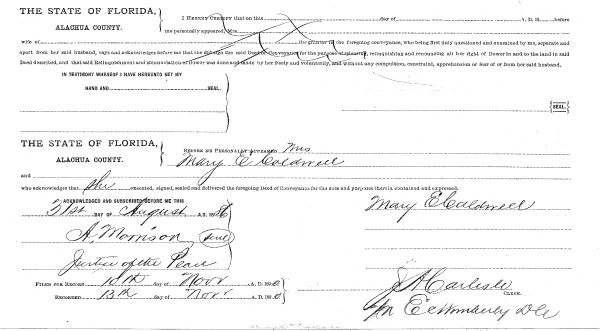 THE STATE OF FLORIDA,
ALACHUA COUNTY.
I HEREBY CERTIFY that on this day of A. D. 18 before
me personally appeared, Mrs.
wife of the grantor in the foregoing conveyance, who being first duly questioned and examined by me, separate and
apart from her said husband, says and acknowledges before me that she did sign the said Deed of Conveyance for the purpose of releasing, relinquishing and renouncing all her right of Dower in and to the land in said
Deed described, and that said Relinquishment and renunciation of Dower was done and made by her freely and voluntarily, and without any compulsion, constraint, apprehension or fear of or from her said husband.
IN TESTIMONY WHEREOF I HAVE HEREUNTO SET MY
HAND AND SEAL.
SEAL.
THE STATE OF FLORIDA,
ALACHUA COUNTY.
BEFORE ME PERSONALLY APPEARED Mrs
Mary E Caldwell
and
who acknowledges that she executed, signed, sealed and delivered the foregoing Deed of Conveyance for the uses and purposes therein contained and expressed.
ACKNOWLEDGED AND SUBSCRIBED BEFORE ME THIS
31st DAY OF August A. D. 18
Mary E Caldwell
A. Morrison Seal
Justice of the Peace
FILED FOR RECORD day of Novr A. D. 18
RECORDED 13th day of Novr A. D. 18
J A Carlisle
CLERK.
E E Wimberly D C